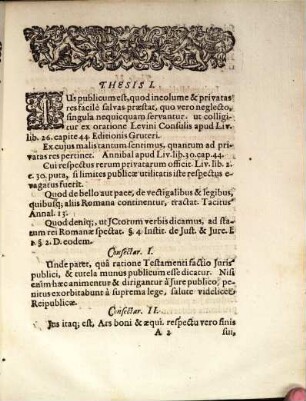 THESIS I.
IUs publicum est, quod incolume & privatas
res facilè salvas præstat, quo vero neglecto,
singula nequicquam servantur. ut colligitur
ex oratione Levini Consulis apud Liv.
lib. 26. capite 44. Editionis Gruteri.
Ex cujus malis tantum sentimus, quantum ad privatas
res pertinet. Annibal apud Liv. lib. 30. cap. 44.
Cui respectus rerum privatarum officit. Liv. lib. 2.
c. 30. puta, si limites publicæ utilitatis iste respectus
evagatus fuerit.
Quod de bello aut pace, de vectigalibus & legibus,
quibusq; aliis Romana continentur, tractat. Tacitus
Annal. 13.
Quod deniq;, ut JCtorum verbis dicamus, ad statum
rei Romanæ spectat. §. 4. Instit. de Just. & Jure. L. 1.
§. 2. D. eodem.
Consectar. I.
Unde patet, quâ ratione Testamenti factio Juris
publici, & tutela munus publicum esse dicatur. Nisi
enim hæc animentur & dirigantur à Jure publico, penitus
exorbitabunt à suprema lege, salute videlicet
Reipublicæ.
Consectar. II.
Jus itaq; est, Ars boni & æqui. respectu vero finis
A 2 sui,